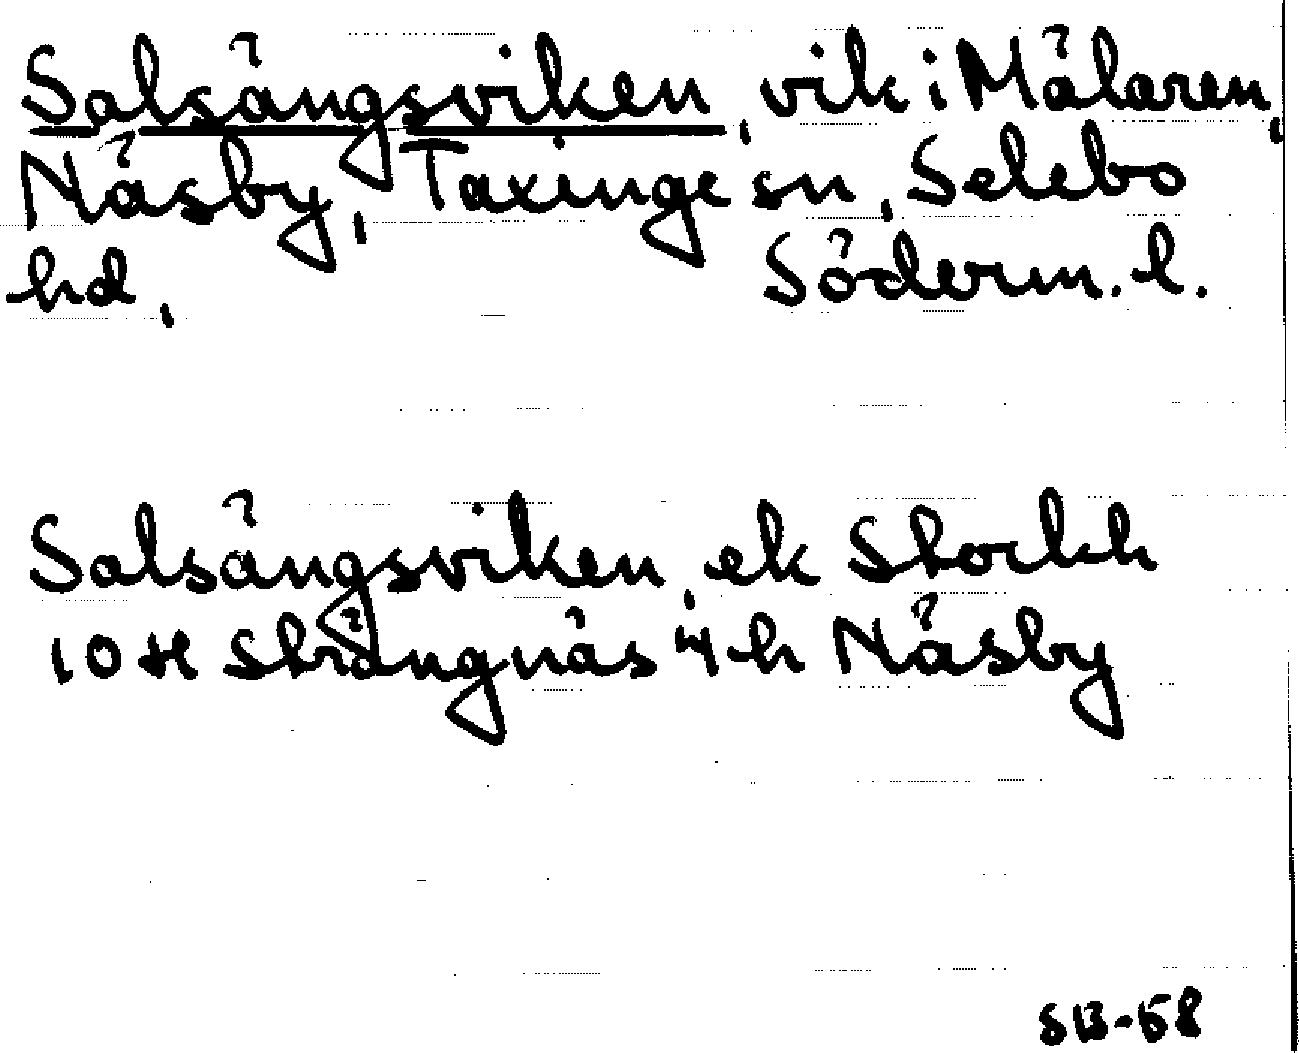 Salsängsviken, vik i Mälaren,
Näsby, Taxinge sn, Selebo
hd, Söderm. l.
Salsängsviken, ek Stockh
10 H Strängnäs 4 h Näsby
SB-58